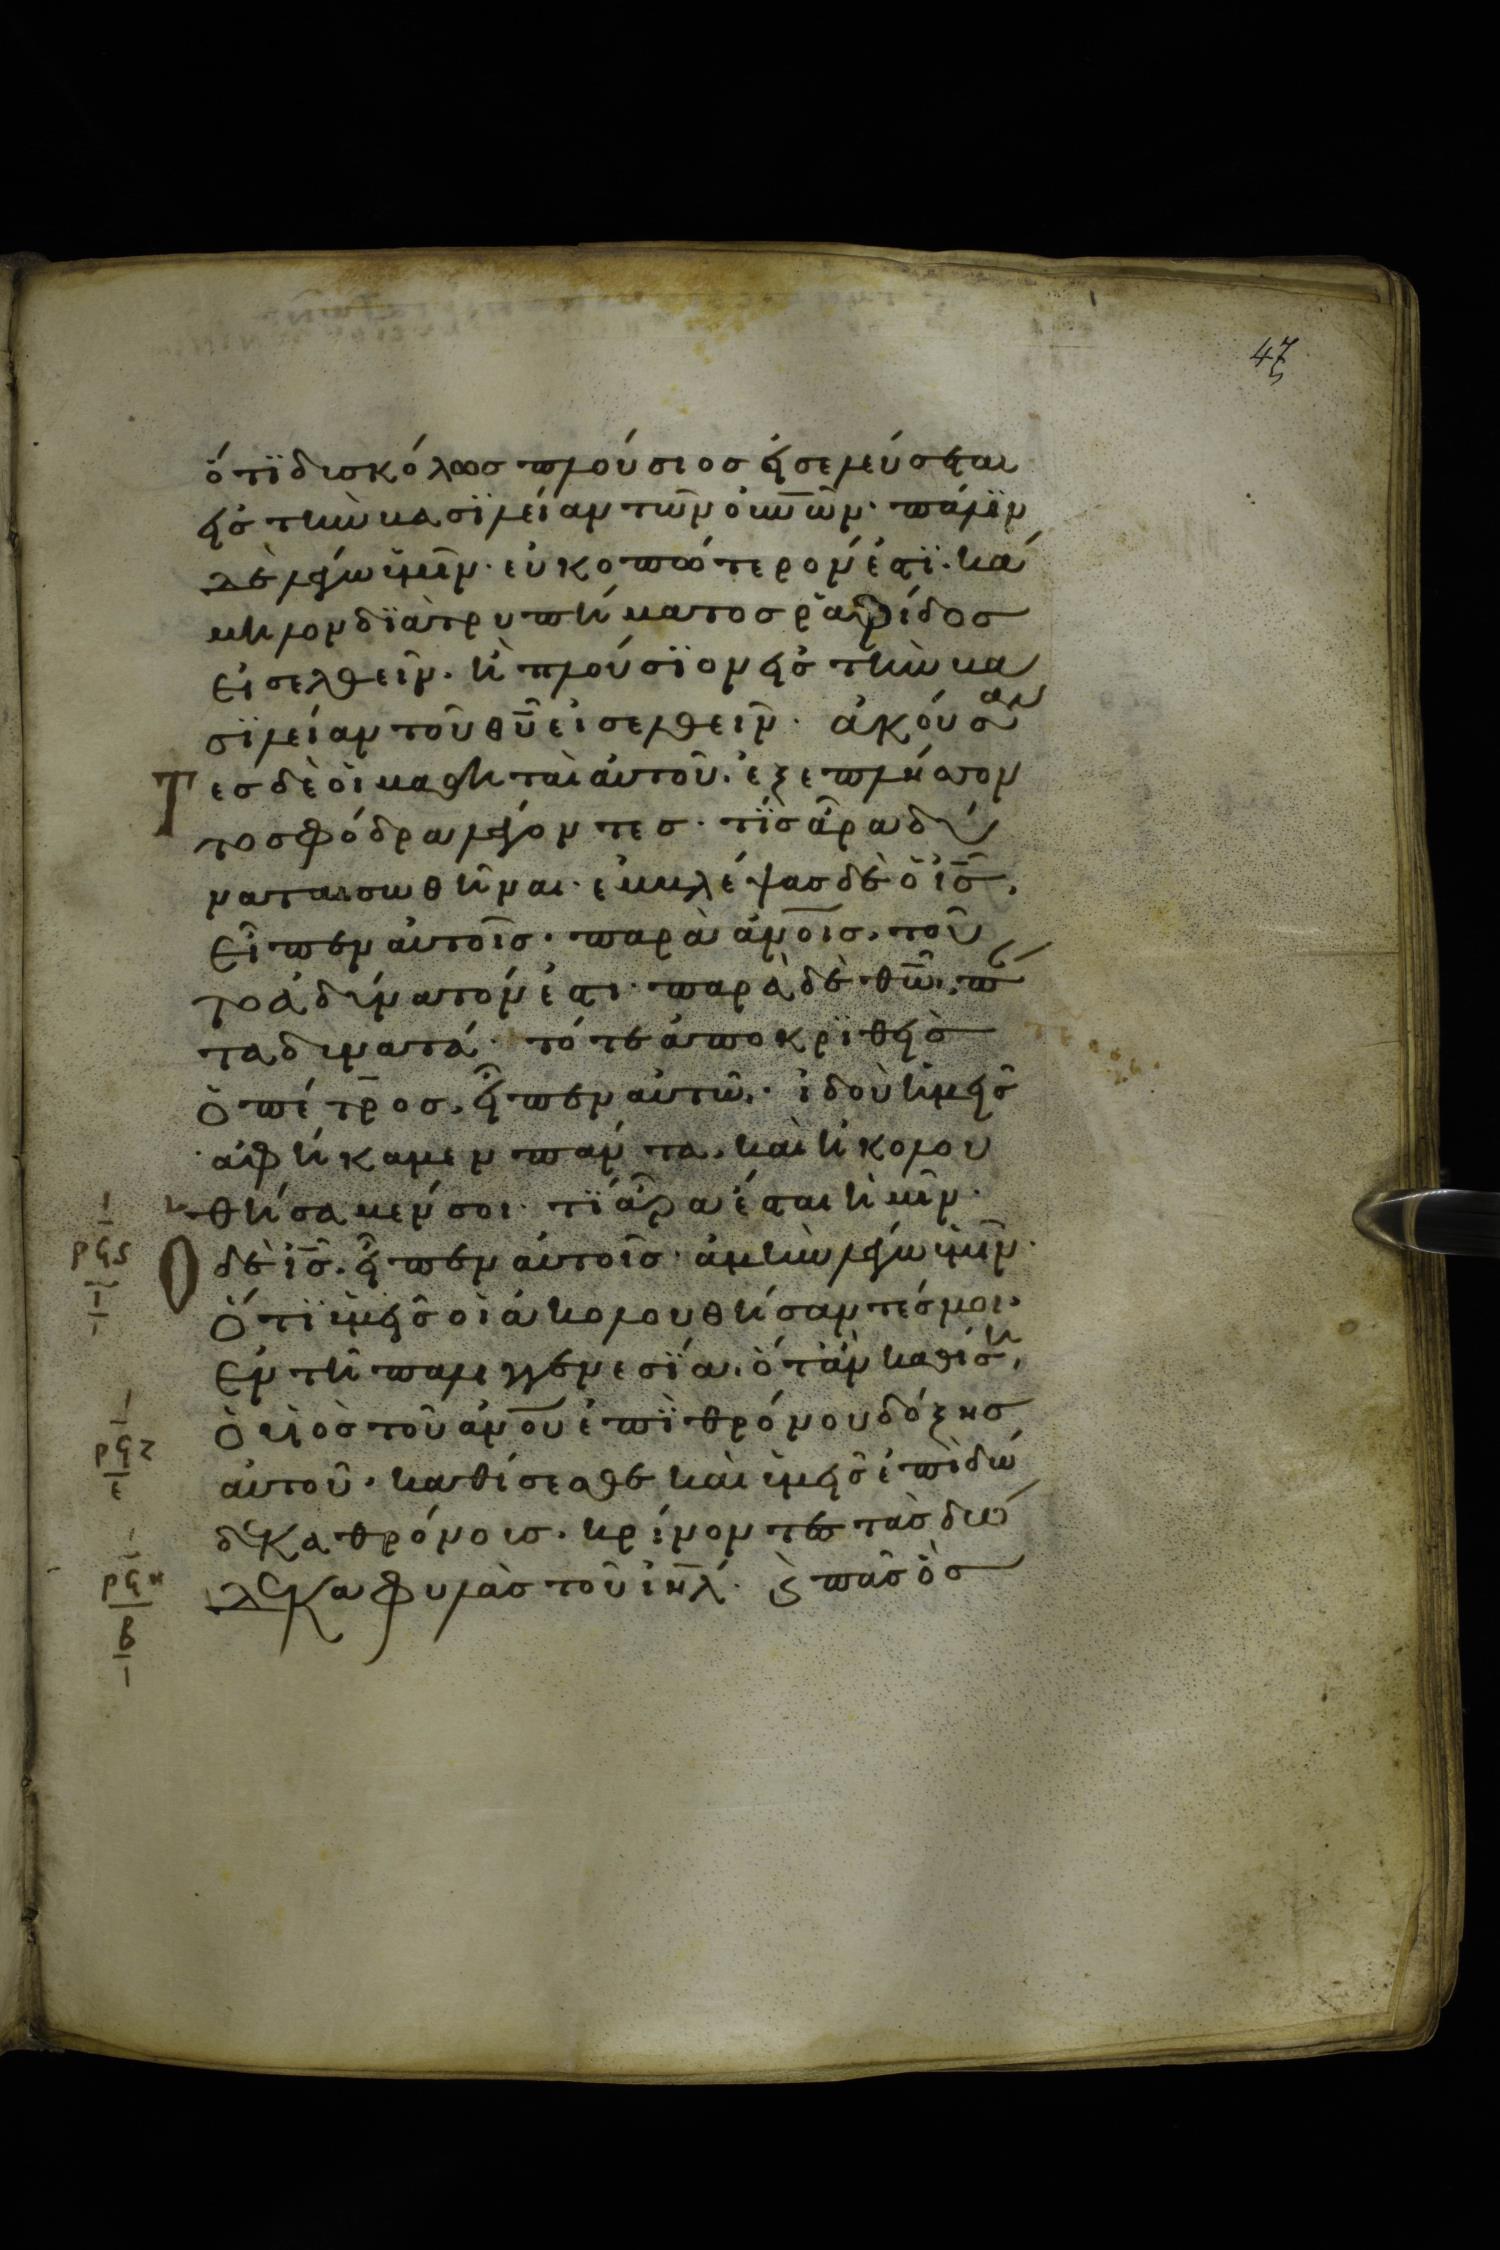 47
ὅτϊ δισκόλωσ πλούσιοσ εἰσελεύσεται
εἰσ τὴν βασϊλείαν τῶν οὐν̅ῶν· πάλϊν
δὲ λέγω ὑμῖν· εὐκοπώτερον ἐστϊ· κά
μηλον δϊὰ τρυπήματοσ ῥαφίδοσ
εἰσελθεῖν· ἢ πλούσϊον εἰσ τὴν βα
σϊλείαν τοῦ θυ̅ εἰσελθεῖν· ἀκούσαν
τεσ δὲ οἱ μαθηταὶ αὐτοῦ· ἐξεπλήσσον
το σφόδρα λέγοντεσ· τίσ ἄρα δύ
ναται σωθῆναι· ἐμβλέψασ δὲ ὁ ι̅σ̅·
εἶπεν αὐτοῖσ· παρὰ ἀνο̅ισ· τοῦ
το ἀδύνατόν ἐστι· παρὰ δὲ θω̅· π
τα δυνατά· τότε ἀποκρϊθεὶσ
ὁ πέτροσ· εἶπεν αὐτῶ· ἰδοὺ ἡμεῖσ
ἀφήκαμεν πάντα· καὶ ἠκολου
θήσαμέν σοι· τϊ ἄρα ἔσται ἡμῖν·
Ὁ δὲ ι̅σ̅· εἶπεν αὐτοῖσ· ἀμὴν λέγω ὑμῖν·
ὅτϊ ὑμεῖσ οἱ ἀκολουθήσαντέσ μοι·
ἐν τῆ παλιγγενεσϊα· ὅτὰν καθίση·
ὁ υἱὸσ τοῦ ἀνο̅υ ἐπϊ θρόνου δόξησ
αὐτοῦ· καθίσεσθε καὶ ὑμεῖσ ἐπὶ δώ
δεκα θρόνουσ· κρίνοντεσ τὰσ δώ
δεκα φυλὰσ τοῦ ι̅η̅λ̅· ϗ πᾶσ ὃσ
ρϟϛ
ι
ρϟζ
ε
ρϟη
β